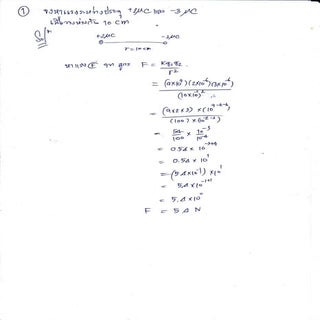 ① จงหาแรงระหว่างประจุ +2μC และ -3μC
เมื่อวางห่างกัน 10 cm
Solⁿ
+2μC -3μC
r = 10 cm
หาแรง F จาก สูตร F = Kq₁q₂ / r²
= (9×10⁹)(2×10⁻⁶)(3×10⁻⁶) / (10×10⁻²)²
= (9×2×3) × (10⁹⁻⁶⁻⁶) / (100) × (10⁻²⁻²)
= 54/100 × 10⁻³/10⁻⁴
= 0.54 × 10⁻³⁺⁴
= 0.54 × 10¹
= (5.4×10⁻¹) × 10¹
= 5.4×10⁻¹⁺¹
= 5.4 × 10⁰
F = 5.4 N